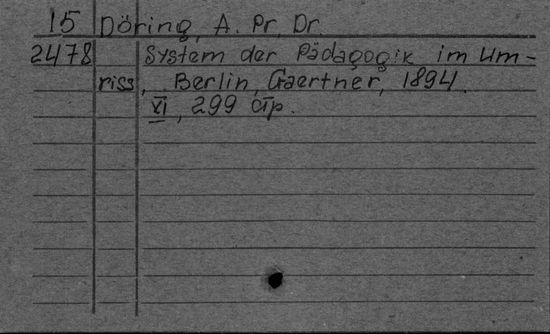 15 Döring, A. Pr. Dr.
2478 System der Pädagogik im Um-
riss, Berlin, Gaertner, 1894.
VI, 299 стр.